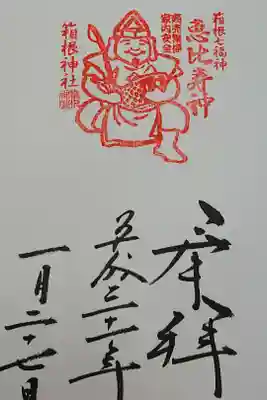 箱根七福神
恵比寿神
商売繁昌
家内安全
箱根神社
奉拝
一月二十七日